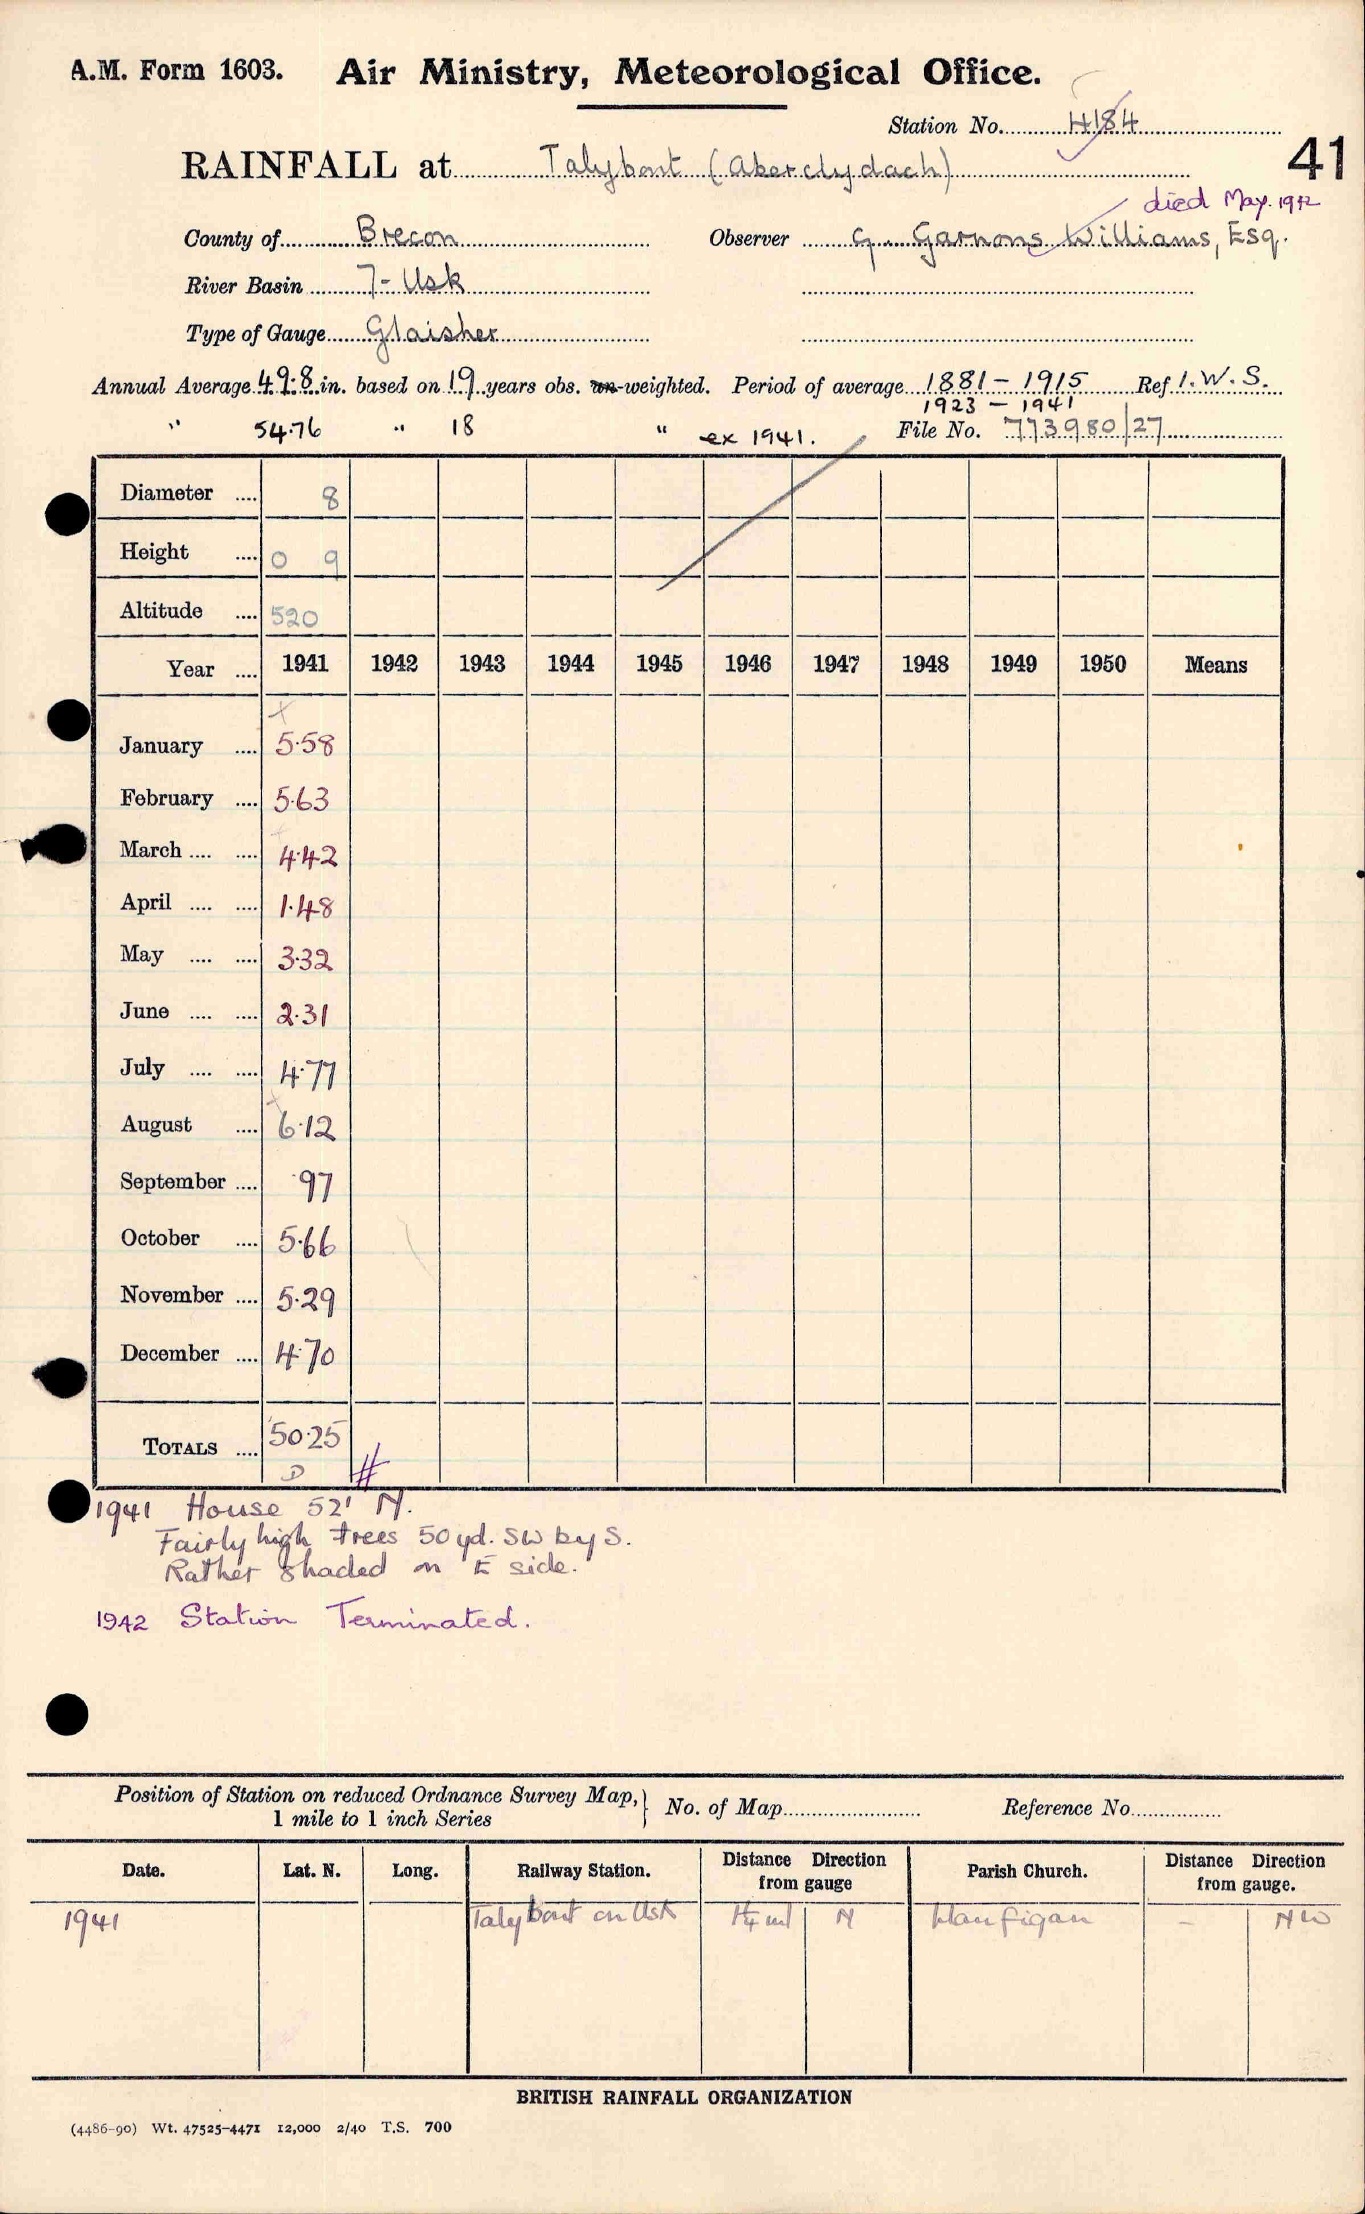 A.M. Form 1603. Air Ministry, Meteorological Office.
Station No. 4184
41
RAINFALL at Talybont (Aberclydach)
died May. 1942
County of Brecon Observer G. Garnons Williams, Esq.
River Basin 7- Usk
Type of Gauge Glaisher
Annual Average 49.8 in. based on 19 years obs. un-weighted. Period of average 1881 - 1915 Ref I.W.S.
1923 - 1941
" 54.76 " 18 " ex 1941. File No. 773980/27
Diameter .... 8
Height .... 0 9
Altitude .... 520
Year .... 1941 1942 1943 1944 1945 1946 1947 1948 1949 1950 Means
January .... 5.58
February .... 5.63
March .... .... 4.42
April .... .... 1.48
May .... .... 3.32
June .... .... 2.31
July .... .... 4.77
August .... 6.12
September .... .97
October .... 5.66
November .... 5.29
December .... 4.70
TOTALS .... 50.25
D #
1941 House 52' N.
Fairly high trees 50 yd. SW by S.
Rather shaded on E side.
1942 Station Terminated.
Position of Station on reduced Ordnance Survey Map, } No. of Map Reference No.
1 mile to 1 inch Series
Date. Lat. N. Long. Railway Station. Distance Direction from gauge Parish Church. Distance Direction from gauge.
1941 Talybont on Usk 1¼ ml N Llanfigan - NW
BRITISH RAINFALL ORGANIZATION
(4486-90) Wt. 47525-4471 12,000 2/40 T.S. 700